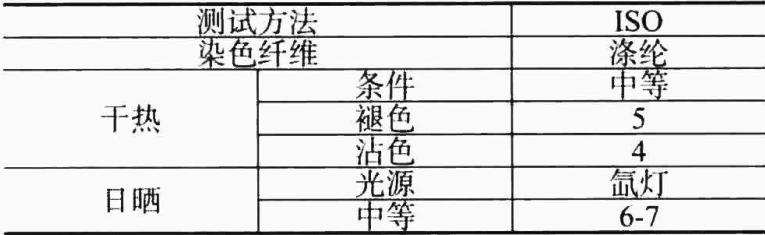 测试方法 ISO
染色纤维 涤纶
干热 条件 中等
褪色 5
沾色 4
日晒 光源 氙灯
中等 6-7